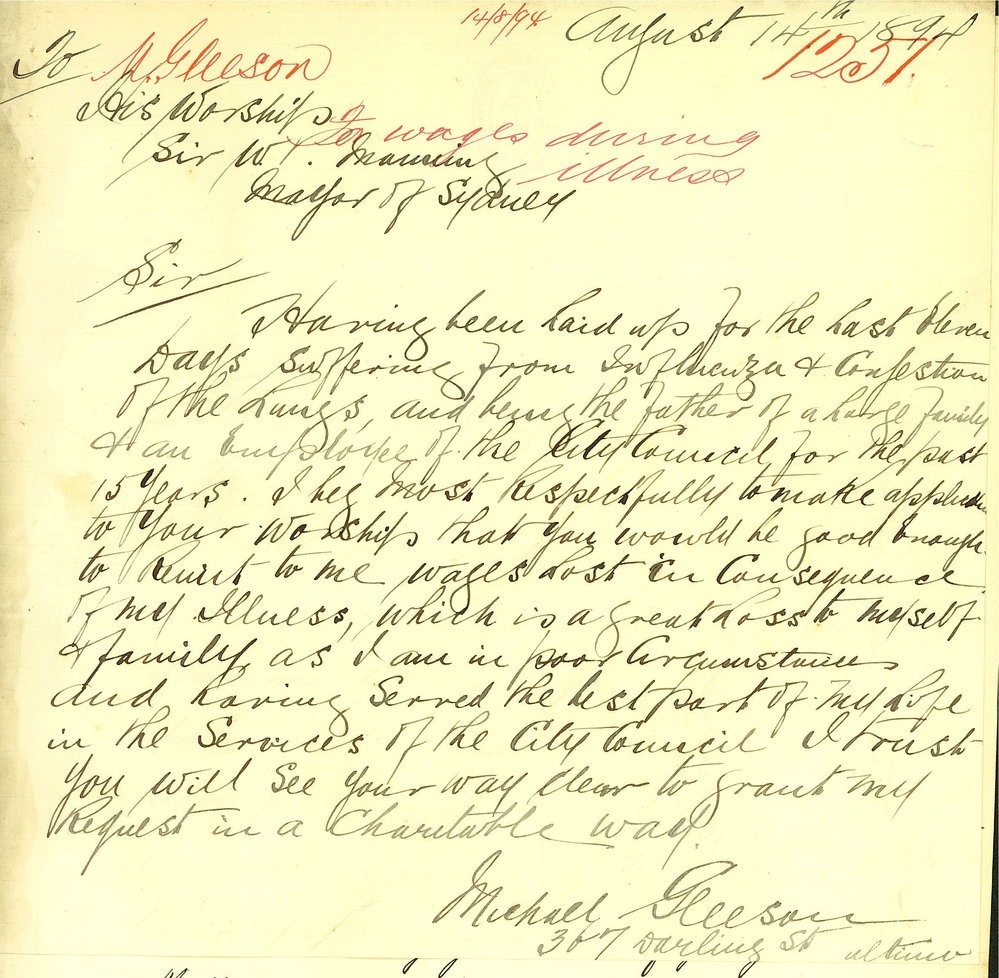 14/8/94. August 14th 1894
1251.
To M. Gleeson
His Worship
for wages during
Sir W. Manning
illness
Mayor of Sydney
Sir
Having been laid up for the last Eleven
Days Suffering from Influenza & Congestion
Of the Lungs, and being the father of a large family
& an Employe of the City Council for the past
15 Years. I beg Most Respectfully to make
to Your Worship that You would be good Enough
to Remit to me wages Lost in Consequence
Of my Illness, which is a great Loss to Myself
& family, as I am in poor Circumstances
and having Served the best part of my Life
in the Services of the City Council I trust
You will See Your way clear to grant my
Request in a Charitable way.
Michael Gleeson
367 Darling St ultimo